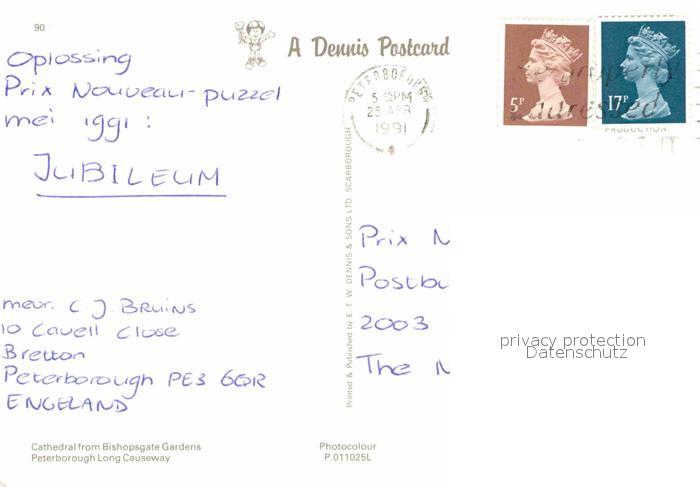 90
A Dennis Postcard
Oplossing
Prix Nouveau-puzzel
mei 1991:
JUBILEUM
PETERBOROUGH
5 PM
25 APR
1991
5P
17P
addressed
PRODUCTION
Printed & Published by E. T. W. DENNIS & SONS LTD. SCARBOROUGH
Prix N
Postbu
2003
The N
mevr. C. J. BRUINS
10 Cavell Close
Bretton
Peterborough PE3 6QR
ENGELAND
privacy protection
Datenschutz
Cathedral from Bishopsgate Gardens
Peterborough Long Causeway
Photocolour
P.011025L